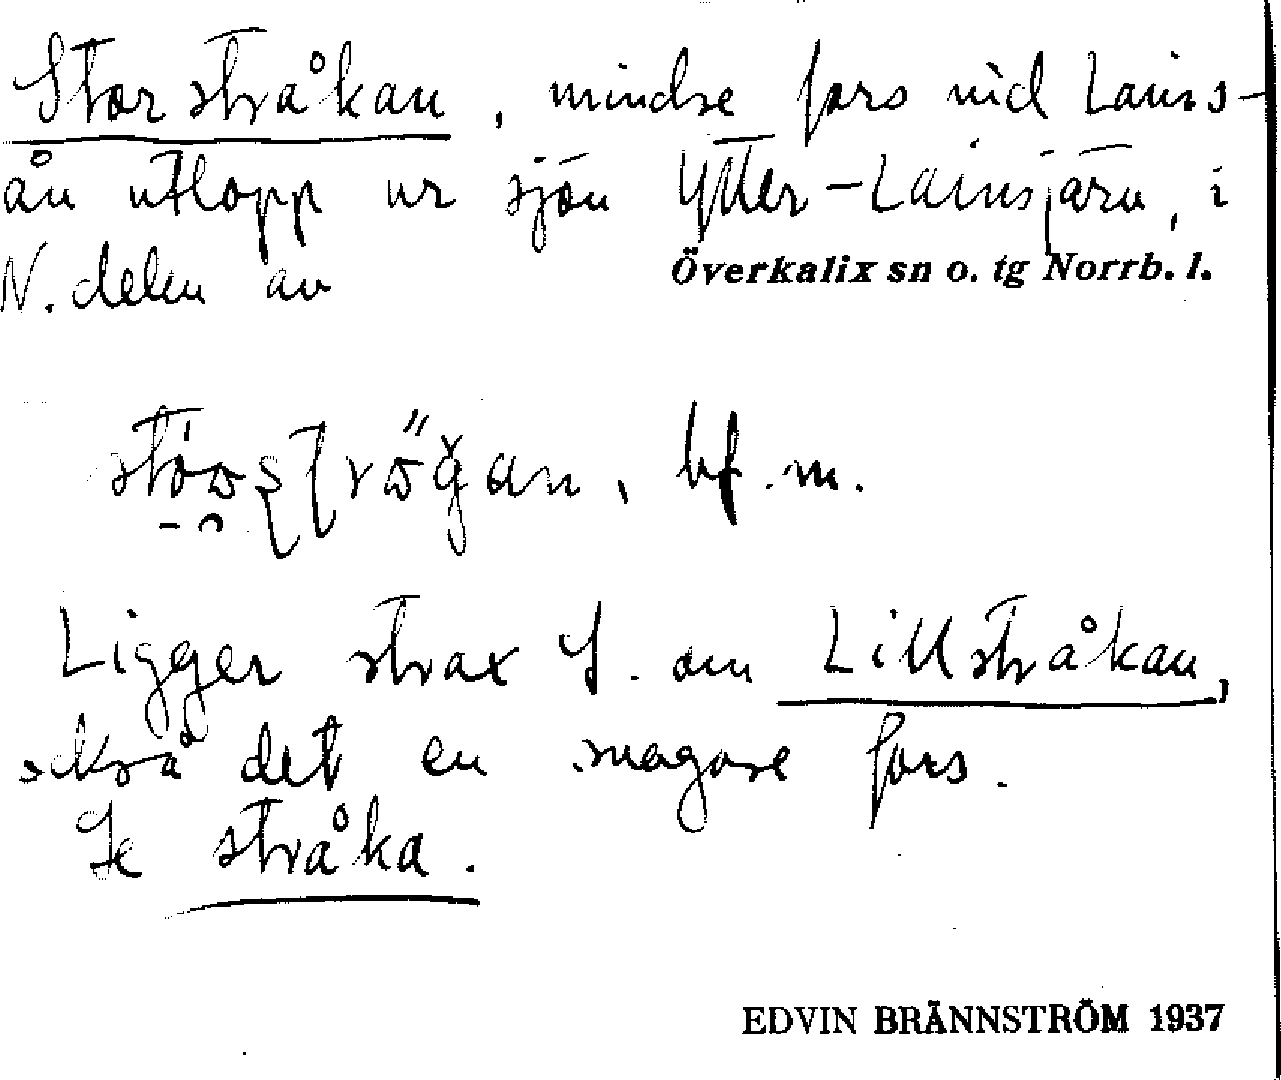 Storstråkan, mindre fors vid Lains-
ån utlopp ur sjön Ytter-Lainsjärv, i
N. delen av Överkalix sn o. tg Norrb. l.
bf. m.
Ligger strax S. om Lillstråkan,
också det en svagare fors.
Se stråka.
EDVIN BRÄNNSTRÖM 1937